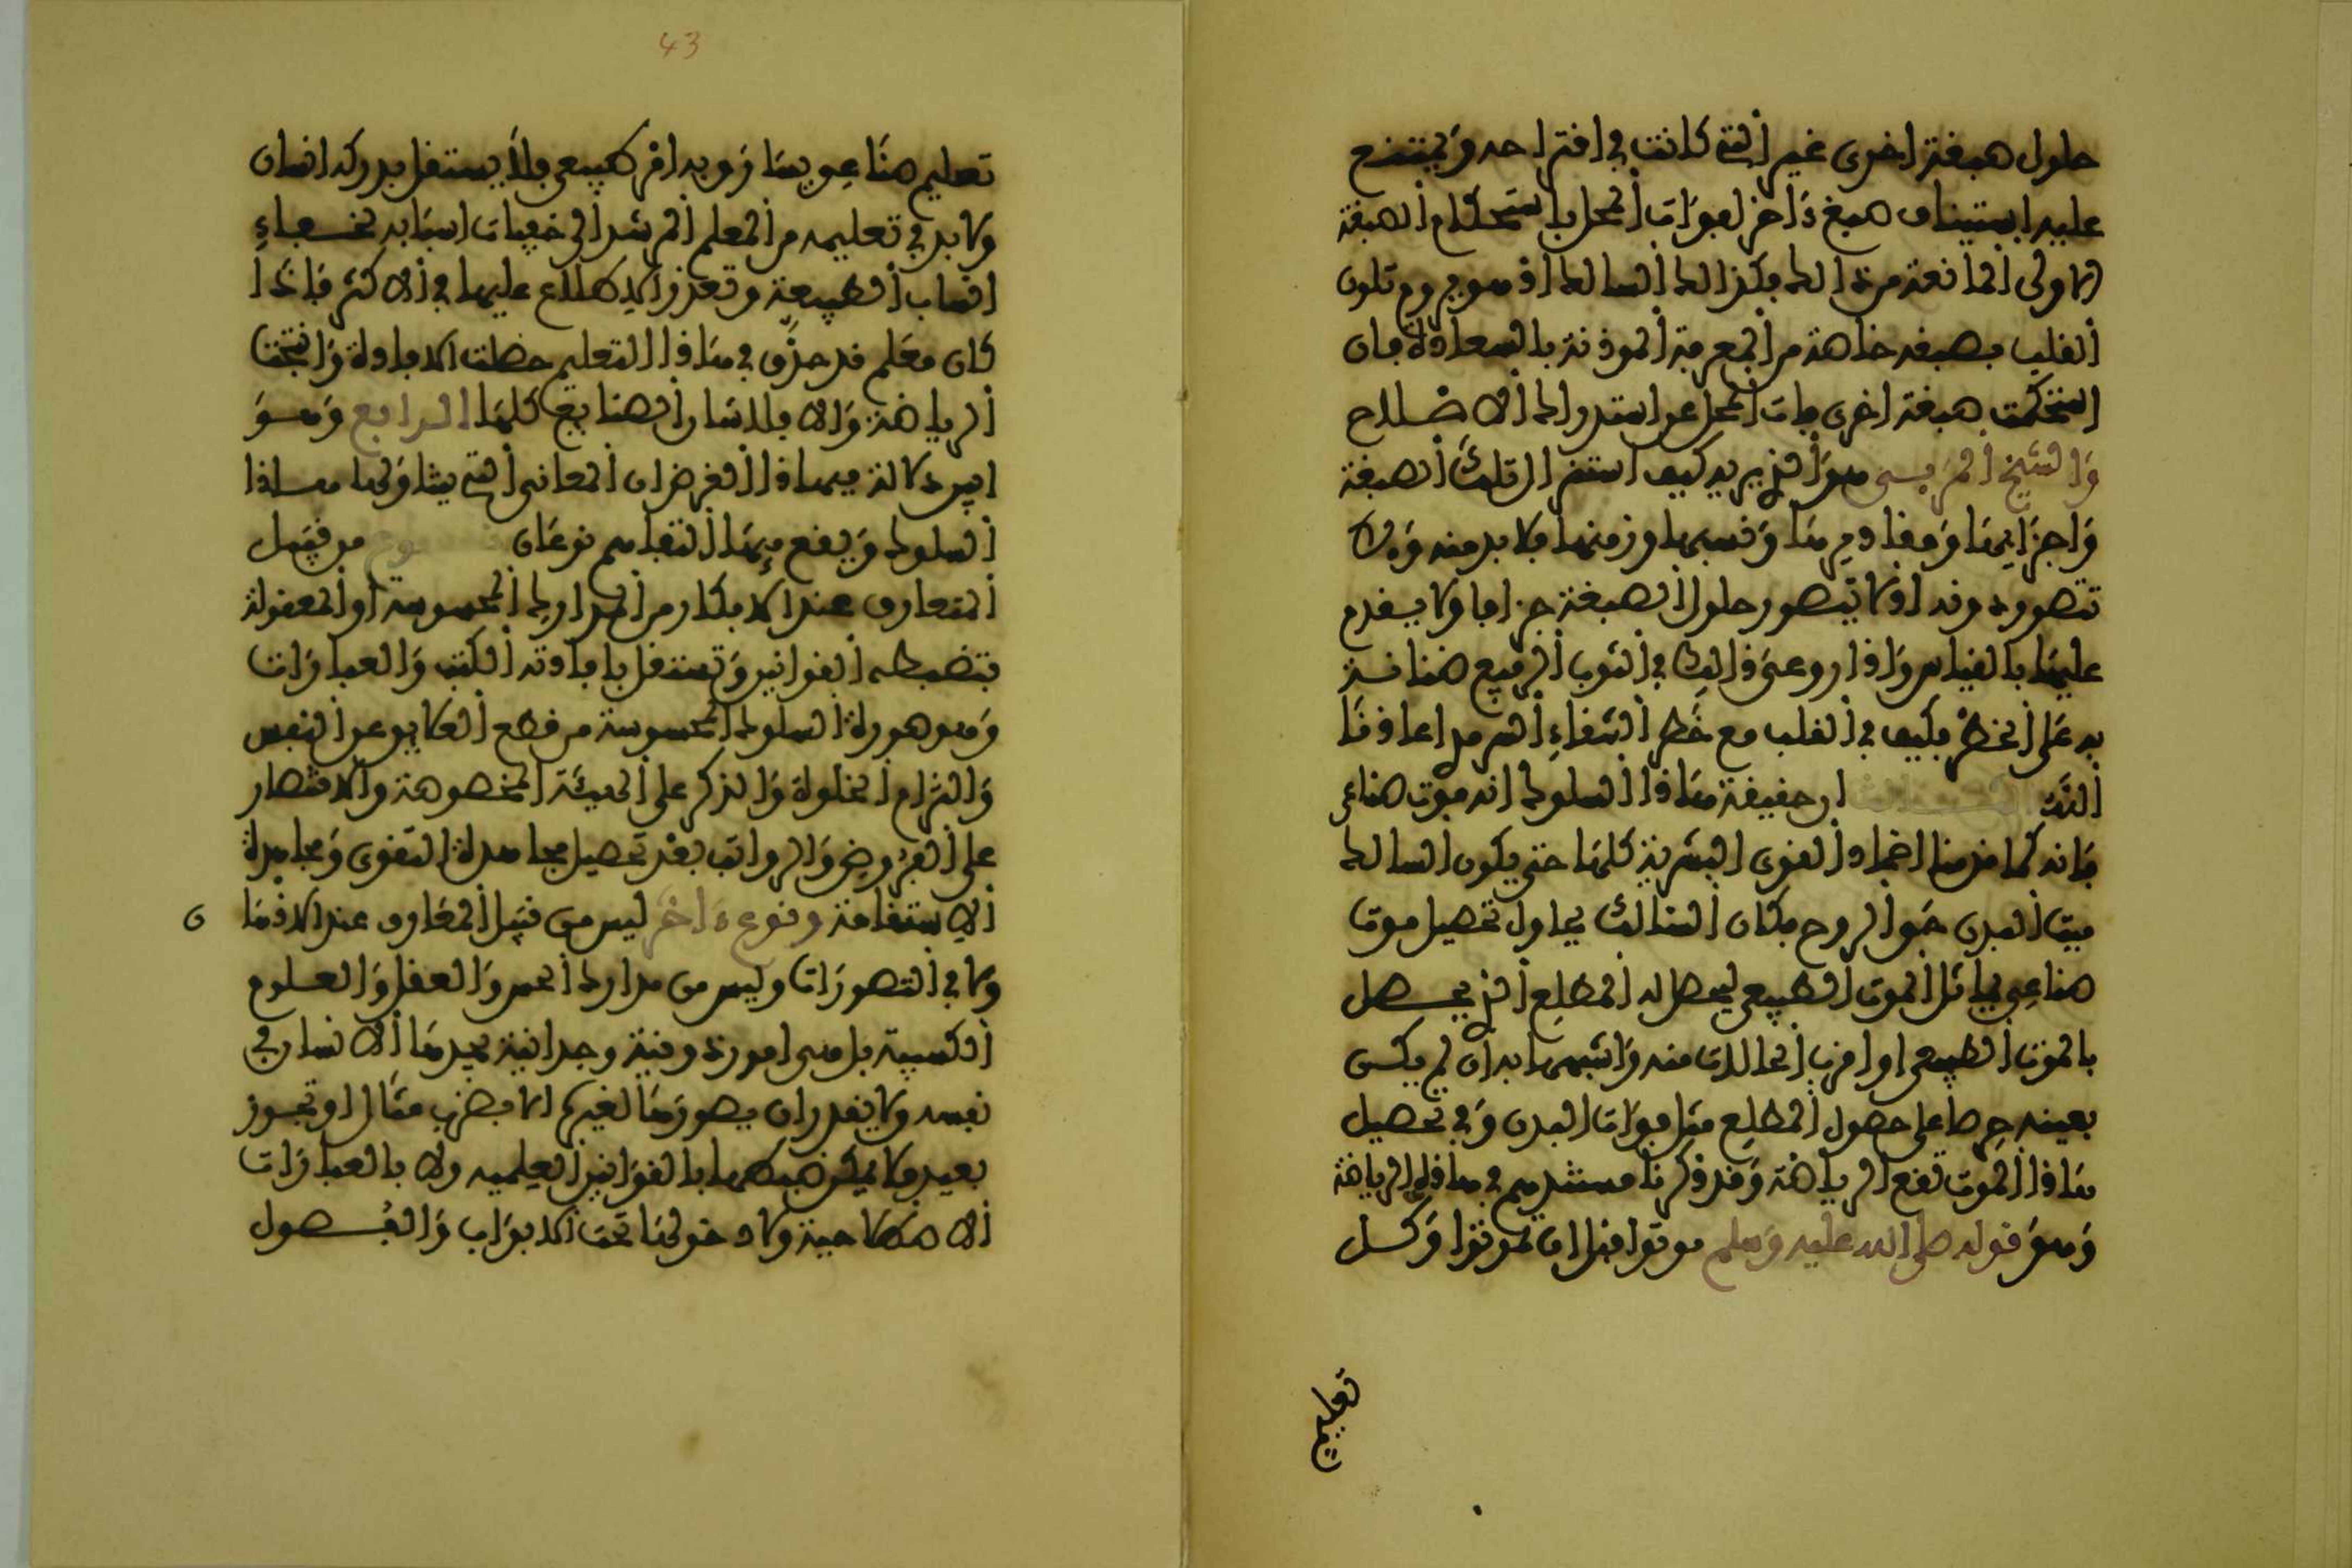 حلول صبغة اخرى غير التى كانت في اقتراحه وَيمتنع
عليه استيناف صبغ ءاخر لفوات المحل باستحكام الصبغة
الاولى المانعة من ذالك فكذالك السالك اذ هو يروم تلون
القلب بصبغه خاصة من المعرفة الموذنة بالسعادة فان
استحكمت صبغة اخرى فات المحل عن استدراك الاصلاح
وَالشيخ المربى هوَ الذي يريه كيف استقرار تلكَ الصبغة
وَاجزائها وَمقاديرها وَقسمها وزمنها فلا بد منه وَلا
تتصور دونه اولا تتصور حلول الصبغة جزافا ولا يقدم
عليها بالقياس وَاذا روعى ذالك في الثوب الرفيع ضنانة
به عَلى الخطر فكيف في القلب مع خَطر الشقاءِ السرمد اعاذنا
اللّه ان حقيقة هَاذا السلوك انه موت صناعى
فانه كما قدمنا اخماد القوى البشرية كلها حتى يكون السالك
ميت البدن حَى الروح فكان السَالك يحاول تحصيل موت
صناعى يماثل الموت الطبيعى ليحصل له المطلع الذي يحصل
بالموت الطبيعى او اقرب الحالات منه وَاشبهها به ان لم يكن
بعينه حرصا على حصول المطلع قبل فوات البدن وَفي تحصيل
هَاذا الموت تقع الرياضة وَقد ذكرنا مستندهم في هاذه الرياضة
وَهوَ قوله صلى الله عليه وَسلم موتوا قبل ان تموتوا وَكل
تعليم
43
تعليم صنَاعى يسَاوق به امر طبيعى فلا يستقل بدركه انسان
ولا بد في تعليمه من المعلم المرشد الى خفيات اسبَابه لخفاءِ
اسباب الطبيعة وتعذر الاطلاع عليها في الاكثر فاذا
كان معَلم قد حذق في هَاذا التعليم حصلت الافادة وَانتجت
الرياضة وَالا فلا شان الصنايع كلها الرابع وَهوَ
ايسر دلالة فيهاذا الغرض ان المعانى التى يتناوَلها هاذا
السلوك وَيقع فيهَا التفاهم نوعَان من قبيل
المتعارف عند الافكار من المدارك المحسوسة او المعقولة
فتضبطه القوانير وَتستقل بافادته الكتب وَالعبارَات
وَهو صورة السلوك المحسوسة من قطع العلايق عن النفس
وَالتزام الخلوة وَالذكر على الهيئَة المخصوصة وَالاقتصار
على الفرُوض وَالرواتب بعْد تحصيل مجاهدة التقوى وَمجاهدة
الاستقامة ونوع ءاخَر ليس من قبيل المتعارف عند الاذهَان
ولا في التصورَات وليس من مدارك الحس وَالعقل وَالعلوم
الكسبية بل هى امور ذوقية وجدانية يجدهَا الانسان في
نفسه ولا يقدر ان يصورهَا لغيره الا بضرب مثال او تجوز
بعيد ولا يمكن ضبطها بالقوَانين العلمية ولا بالعبارَات
الاصطلاحية ولا دخولهَا تحت الابوَاب وَالفصول